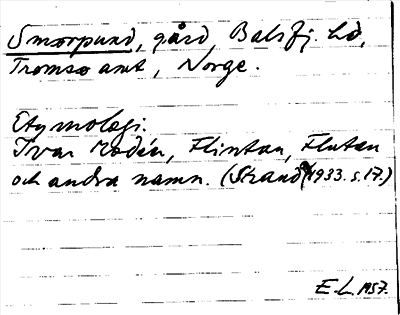 Smørpund, gård, Balsfj. hd,
Tromsø amt, Norge.
Etymologi.
Ivar Modéer, Flintan, Flutan
och andra namn. (Strand 1933. s. 17.)
E. L. 1957.